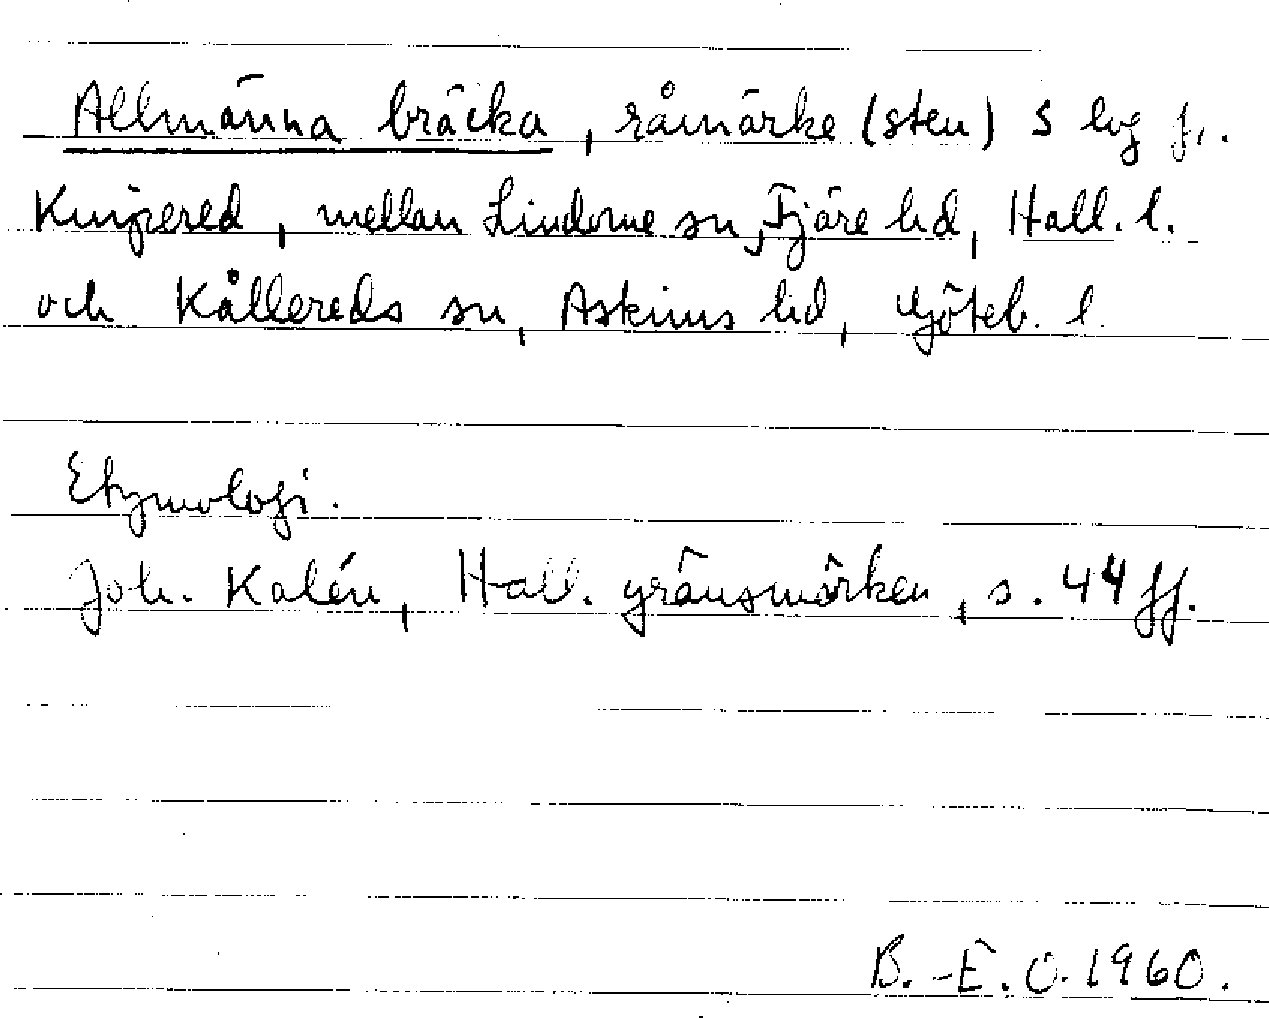 Allmänna bräcka, råmärke (sten) S bg fr.
Knipered, mellan Lindome sn, Fjäre hd, Hall. l.
och Kållereds sn, Askims hd, Göteb. l.
Etymologi.
Joh. Kalén, Hall. gränsmärken, s. 44 ff.
B.-E. O. 1960.